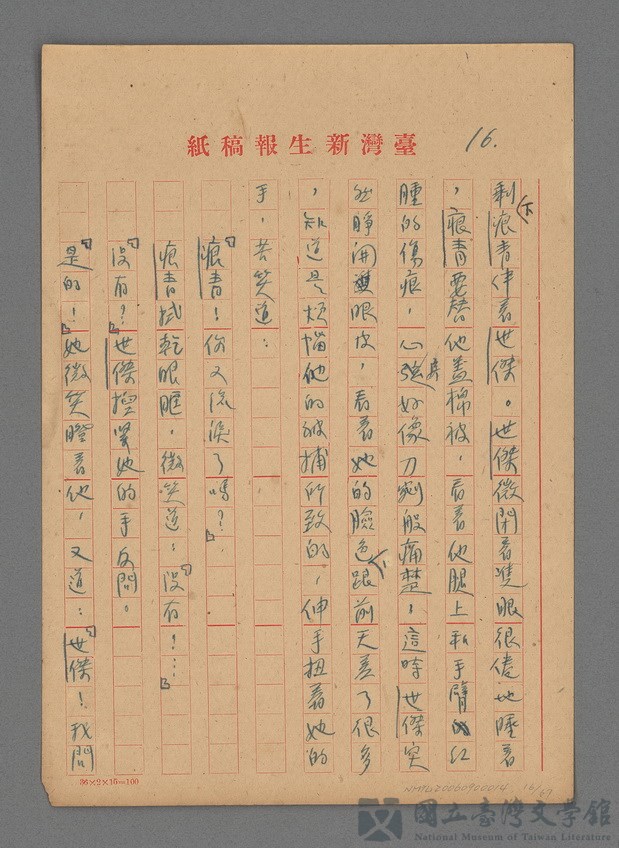 16.
紙稿報生新灣臺
剩痕青伴着世傑。世傑微閉着雙眼很倦地睡着
，痕青要替他盖棉被，看着他腿上和手臂紅
腫的傷痕，心強好像刀割般痛楚，這時世傑突
然睜開雙眼皮，看着她的臉色跟前天差了很多
，知道是煩惱他的被捕所致的，伸手扭着她的
手，苦笑道：
「痕青！你又流淚了嗎？」
痕青拭乾眼眶，微笑道：「沒有！…」
「沒有？」世傑握緊她的手反問。
「是的！」她微笑瞪着他，又道：「世傑！我問
36×2×15=100
NMTL20060900014 16/67
國立臺灣文學館
National Museum of Taiwan Literature